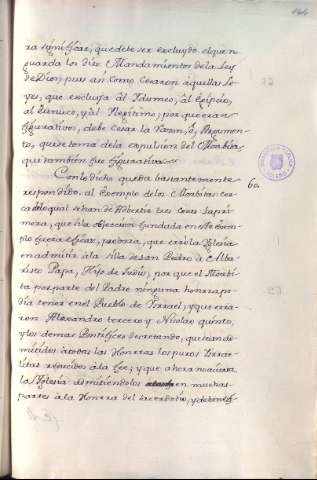 144
ra significar, que debe ser excluydo el que no
guarda los diez Mandamientos de la Ley
de Dios; pues asi como cesaron aquellas Le-
yes, que excluyan al Idumeo, al Egipcio,
al Eunuco, y al Illegitimo, porque eran
figurativos, debe cesar la razon, ò Argumen-
to, que se toma de la expulsion del Moabita,
que tambien fue figurativa.
Con lo dicho queda bastantemente
60.
respondido al Exemplo de los Moabitas: cer-
ca de lo qual se han de advertir tres cosas. La pri-
mera, que si la objeccion fundada en este Exem-
plo fuera eficàz, probaria, que errò la Yglesia
en admitir à la silla de San Pedro à
Papa, Hijo de Judio, porque el Moabi-
ta por parte del Padre ninguna honrra po-
dia tener en el Pueblo de Ysrrael, y que erra-
ron Alexandro tercero, y Nicolao quinto,
y los demas Pontifices decretando, que sean ad-
mitidos à todas las Honrras los puros Ysrrae-
litas reducidos à la Fee; y que ahora
la Yglesia admitiendolos en muchas
partes à la Honrra del sacerdocio, y